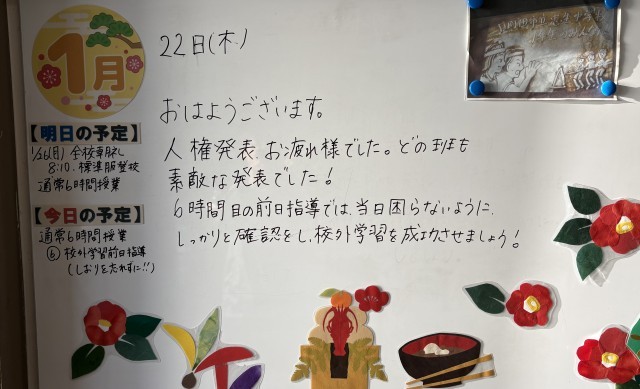 1月
22日(木)
おはようございます。
人権発表、お疲れ様でした。どの班も
素敵な発表でした!
6時間目の前日指導では、当日困らないように、
しっかりと確認をし、校外学習を成功させましょう!
【明日の予定】
1/26(月) 全校朝礼
8:10. 標準服登校
通常6時間授業
【今日の予定】
通常6時間授業
⑥ 校外学習前日指導
(しおりを忘れずに!!)